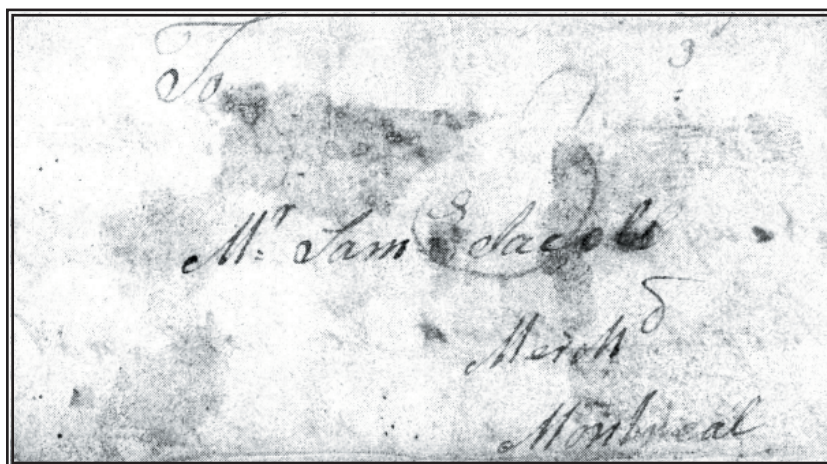 To
3
Mr. Saml Jacobs
Merch
Montreal